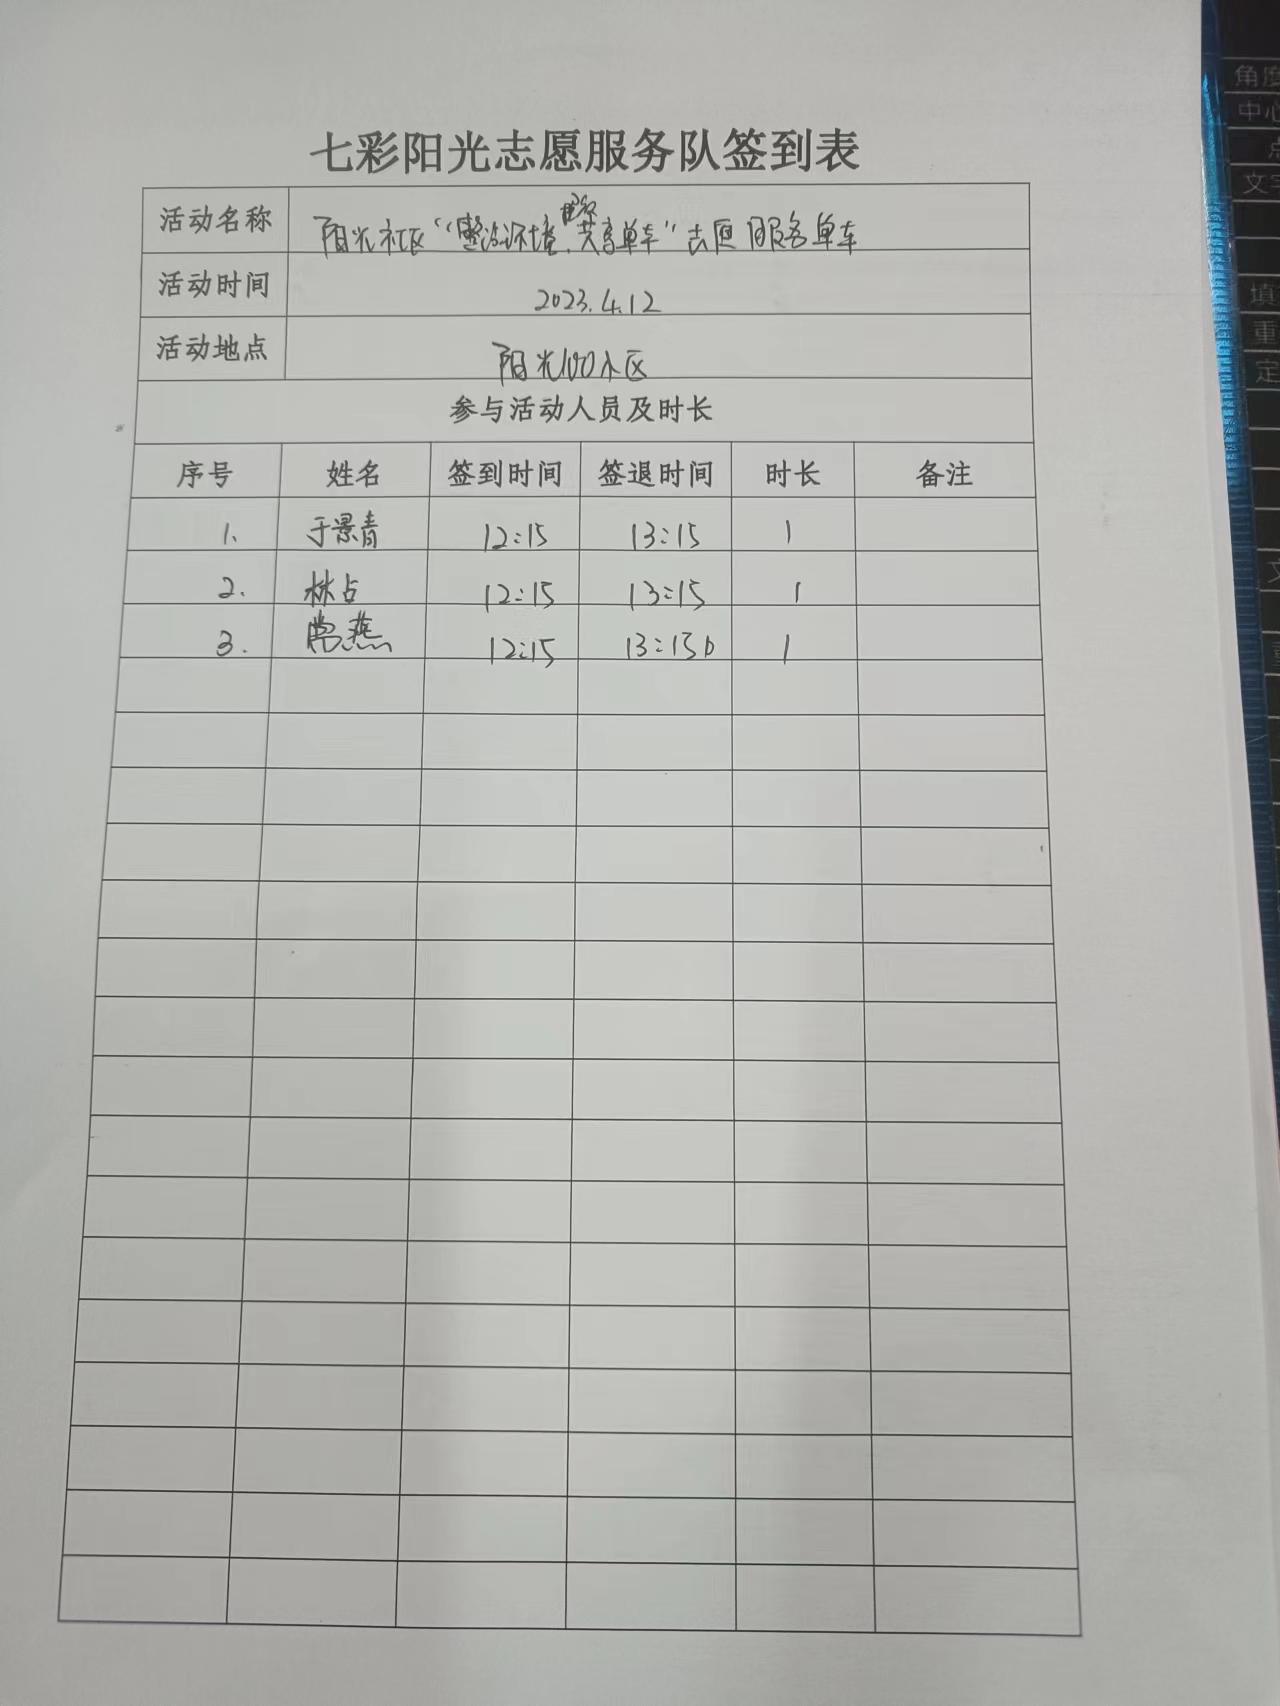 七彩阳光志愿服务队签到表
活动名称 阳光社区“整治环境、共享单车”志愿服务单车
活动时间 2023.4.12
活动地点 阳光100小区
参与活动人员及时长
序号 姓名 签到时间 签退时间 时长 备注
1. 于景青 12:15 13:15 1
2. 林占 12:15 13:15 1
3. 燕 12:15 13:15 1
角度
中心
点
文字
填
重
定